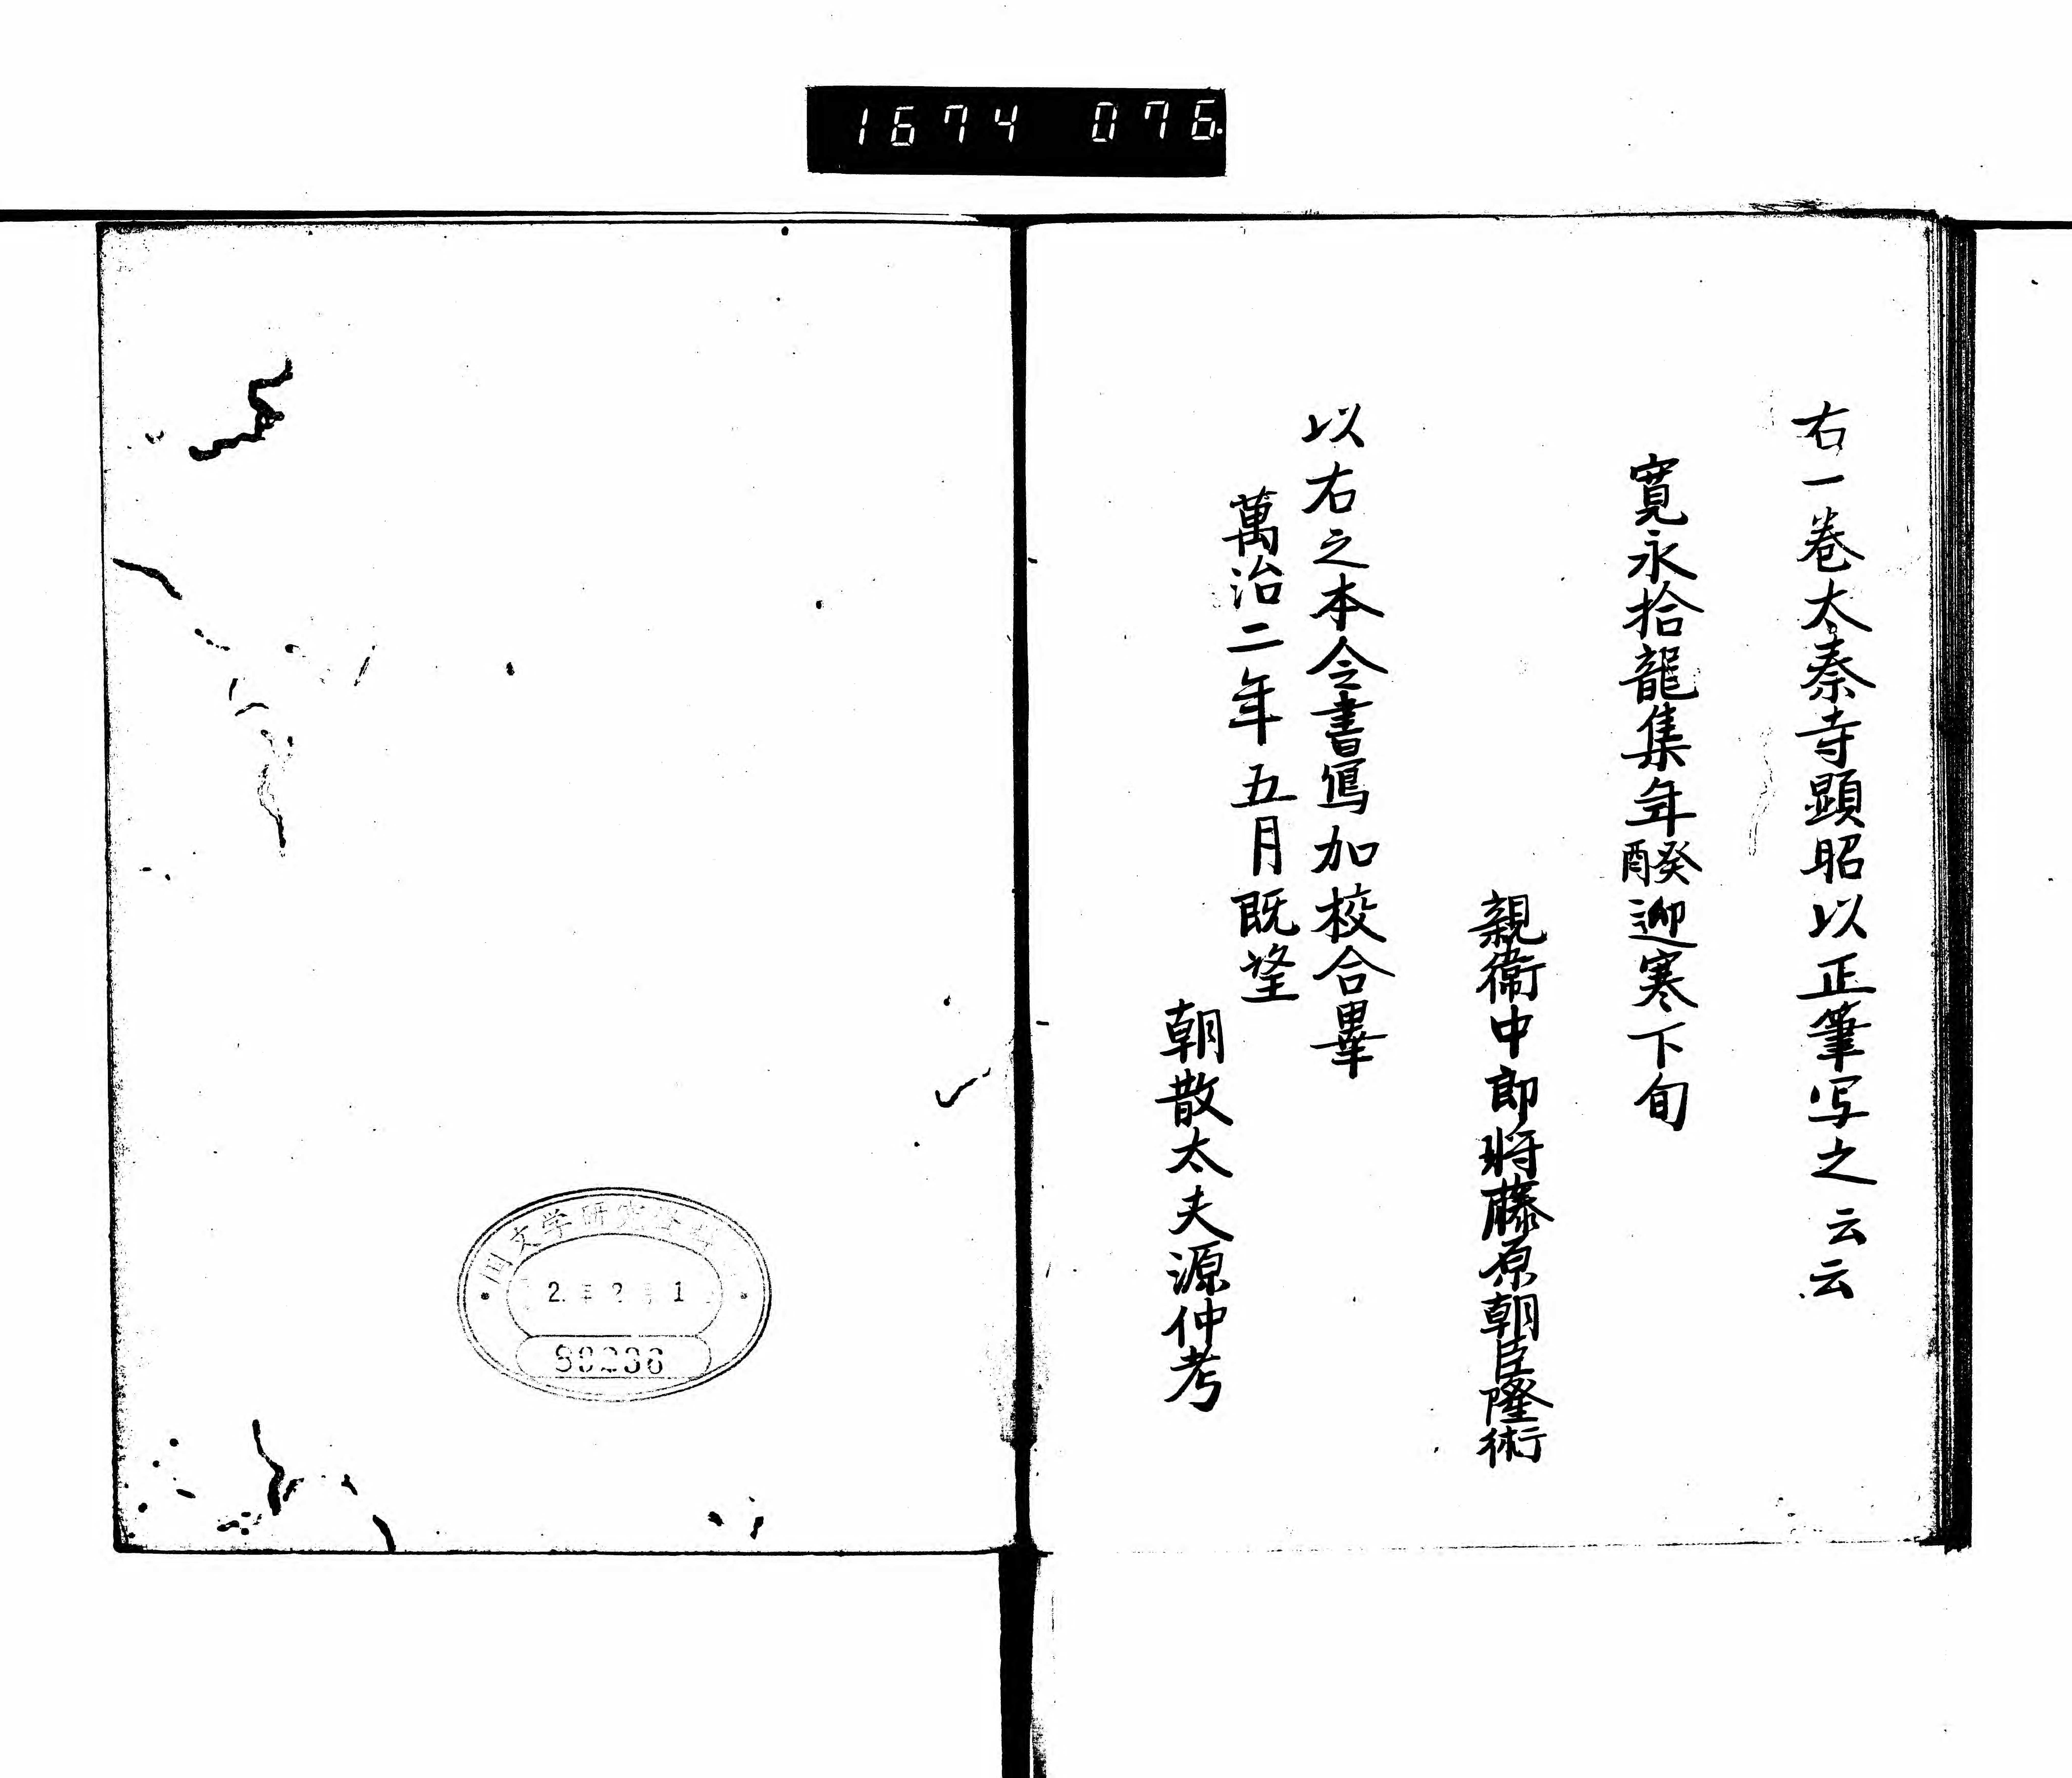 1674 076.
右一巻太秦寺顕昭以正筆写之云云
寛永拾龍集年癸酉迎寒下旬
親衛中郎將藤原朝臣隆術
以右之本令書写加校合畢
萬治二年五月既望
朝散太夫源仲考
国文学研究資料